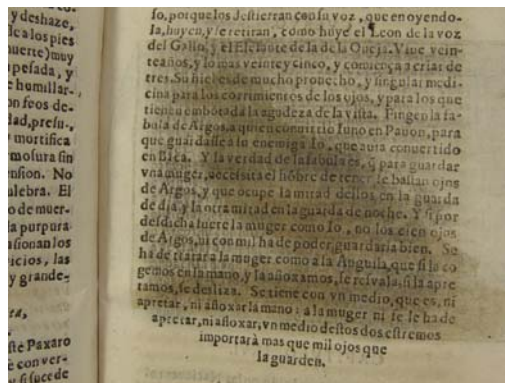 y deshaze,
lca los pies
muerte) muy
pesada, y
e humillar-
on feos de-
dad, presu-,
mortifica
mosura sin
ension. No
ulebra. El
o de muer-
la purpura
asionan los
icios, las
y grande-
ste Paxaro
e conver-
y si sucede
so, porque los destierran con su voz, que en oyendo-
la, huyen, y se retiran, como huye el Leon de la voz
del Gallo, y el Elefante de la de la Oueja. Viue vein-
te años, y lo mas veinte y cinco, y comiença a criar de
tres. Su hiel es de mucho prouecho, y singular medi-
cina para los corrimientos de los ojos, y para los que
tienen embotada la agudeza de la vista. Fingen la fa-
bula de Argos, a quien conuirtio Iuno en Pauon, para
que guardasse a su enemiga Io, que auia conuertido
en Baca. Y la verdad de la fabula es, q̃ para guardar
vna muger, necessita el hõbre de tener le bastan ojos
de Argos, y que ocupe la mitad dellos en la guarda
de dia y la otra mitad en la guarda de noche. Y si por
desdicha fuere la muger como Io, no los cien ojos
de Argos, ni con mil ha de poder guardarla bien. Se
ha de tratar a la muger como a la Anguila, que si la co
gemos en la mano, y la afloxamos, se resvala, si la apre
tamos, se desliza. Se tiene con vn medio, que es, ni
apretar, ni afloxar la mano: a la muger ni se le ha de
apretar, ni afloxar, vn medio destos dos estremos
importarà mas que mil ojos que
la guarden.